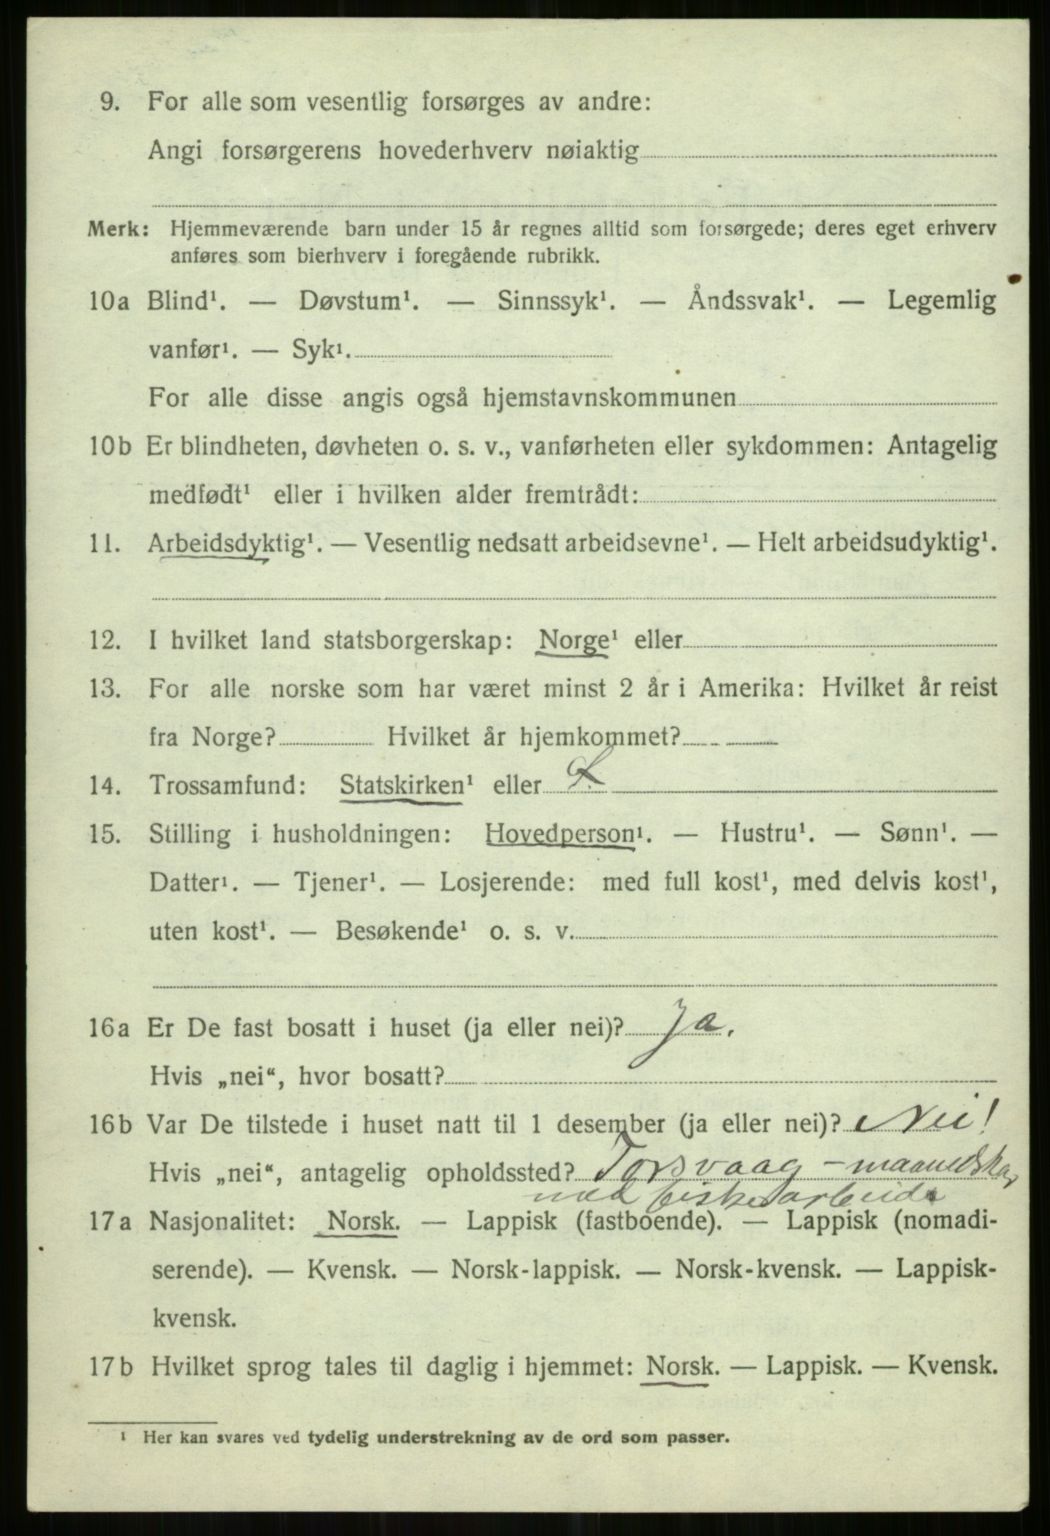 9. For alle som vesentlig forsørges av andre:
Angi forsørgerens hovederhverv nøiaktig
Merk: Hjemmeværende barn under 15 år regnes alltid som forsørgede; deres eget erhverv
anføres som bierhverv i foregående rubrikk.
10a Blind¹. — Døvstum¹. — Sinnssyk¹. — Åndssvak¹. — Legemlig
vanfør¹. — Syk¹.
For alle disse angis også hjemstavnskommunen
10b Er blindheten, døvheten o. s. v., vanførheten eller sykdommen: Antagelig
medfødt¹ eller i hvilken alder fremtrådt:
11. Arbeidsdyktig¹. — Vesentlig nedsatt arbeidsevne¹. — Helt arbeidsudyktig¹.
12. I hvilket land statsborgerskap: Norge¹ eller
13. For alle norske som har været minst 2 år i Amerika: Hvilket år reist
fra Norge? Hvilket år hjemkommet?
14. Trossamfund: Statskirken¹ eller
15. Stilling i husholdningen: Hovedperson¹. — Hustru¹. — Sønn¹. —
Datter¹. — Tjener¹. — Losjerende: med full kost¹, med delvis kost¹,
uten kost¹. — Besøkende¹ o. s. v.
16a Er De fast bosatt i huset (ja eller nei)? Ja.
Hvis „nei“, hvor bosatt?
16b Var De tilstede i huset natt til 1 desember (ja eller nei)? Nei!
Hvis „nei“, antagelig opholdssted? Torsvaag –
med
17a Nasjonalitet: Norsk. — Lappisk (fastboende). — Lappisk (nomadi-
serende). — Kvensk. — Norsk-lappisk. — Norsk-kvensk. — Lappisk-
kvensk.
17b Hvilket sprog tales til daglig i hjemmet: Norsk. — Lappisk. — Kvensk.
¹ Her kan svares ved tydelig understrekning av de ord som passer.